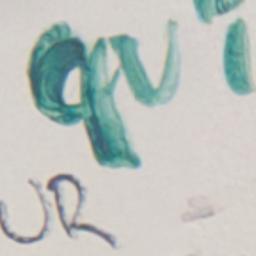 qui
UR